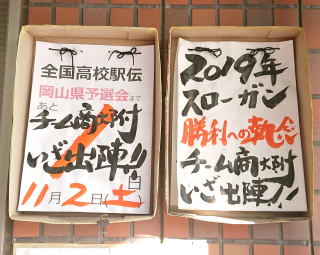 全国高校駅伝
岡山県予選会まで
あと
1
日
チーム商大附
いざ出陣!!
11月2日(土)
2019年
スローガン
勝利への執念
チーム商大附
いざ出陣!!